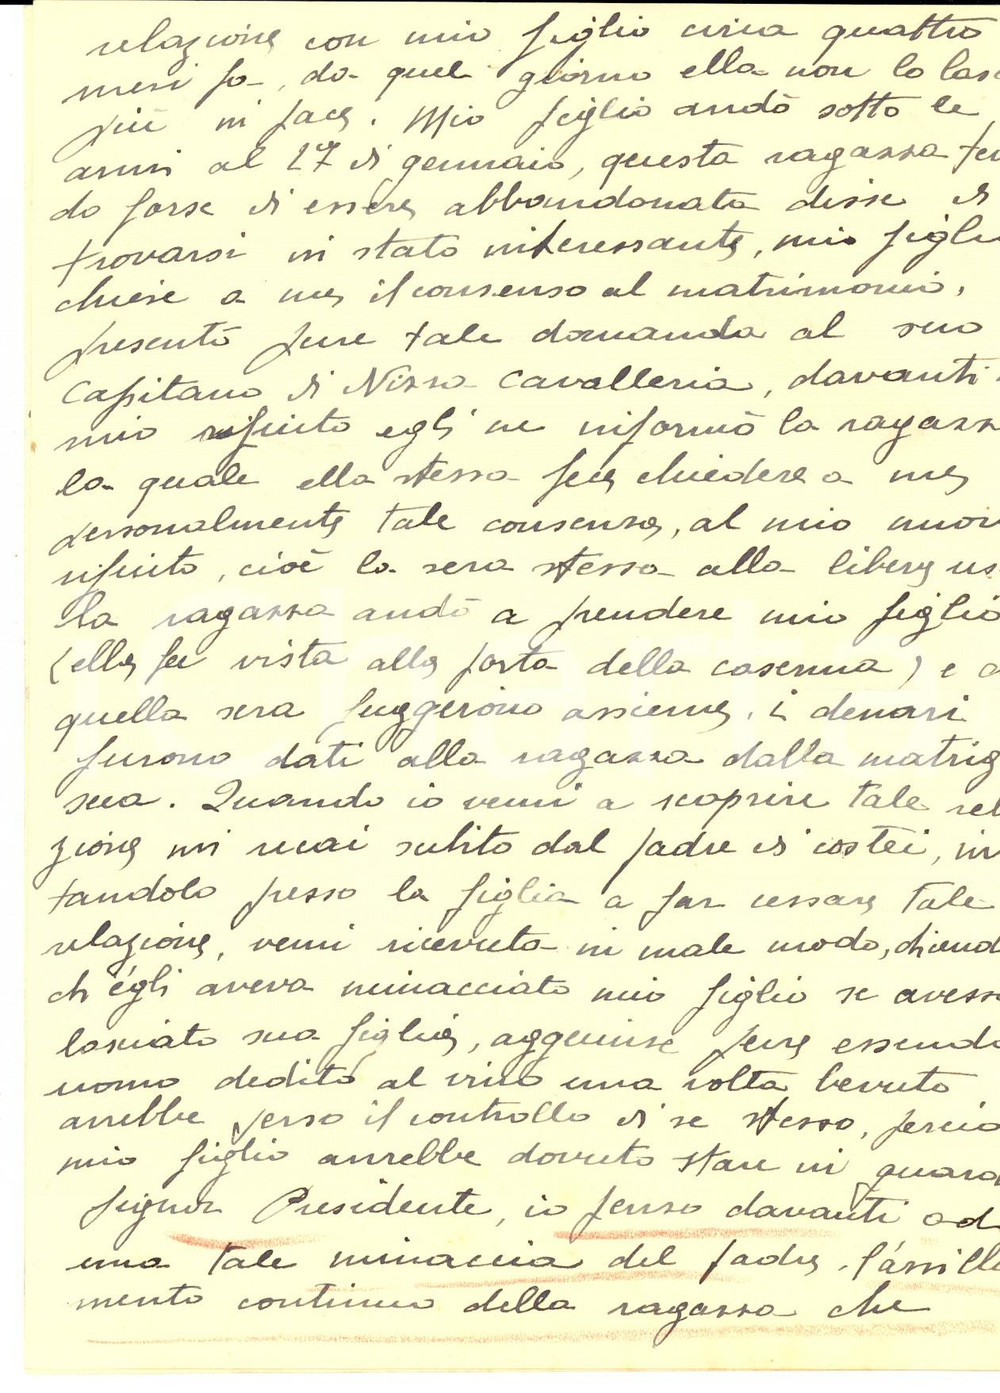 relazione con mio figlio circa quattro
mesi fa, da quel giorno ella non lo lasc
più in pace. Mio figlio andò sotto le
armi al 27 di gennaio, questa ragazza tem
do forse di essere abbandonata disse di
trovarsi in stato interessante, mio figli
chiese a me il consenso al matrimonio,
presentò pure tale domanda al suo
Capitano di Nizza Cavalleria, davanti
mio rifiuto egli ne informò la ragazz
la quale ella stessa fece chiedere a me
personalmente tale consenso, al mio nuov
rifiuto, cioè la sera stessa alla libera us
la ragazza andò a prendere mio figlio
(ella fu vista alla porta della caserma) e
quella sera fuggirono assieme. i denari
furono dati alla ragazza dalla matrig
sua. Quando io venni a scoprire tale rel
zione mi recai subito dal padre di costei, in
tandolo presso la figlia a far cessare tale
relazione, venni ricevuta in male modo, dicend
ch'egli aveva minacciato mio figlio se avess
lasciato sua figlia, aggiunse pure essend
uomo dedito al vino una volta bevuto
avrebbe perso il controllo di se stesso, perciò
mio figlio avrebbe dovuto stare in guard
Signor Presidente, io penso davanti ad
una tale minaccia del padre, l'assill
mento continuo della ragazza che